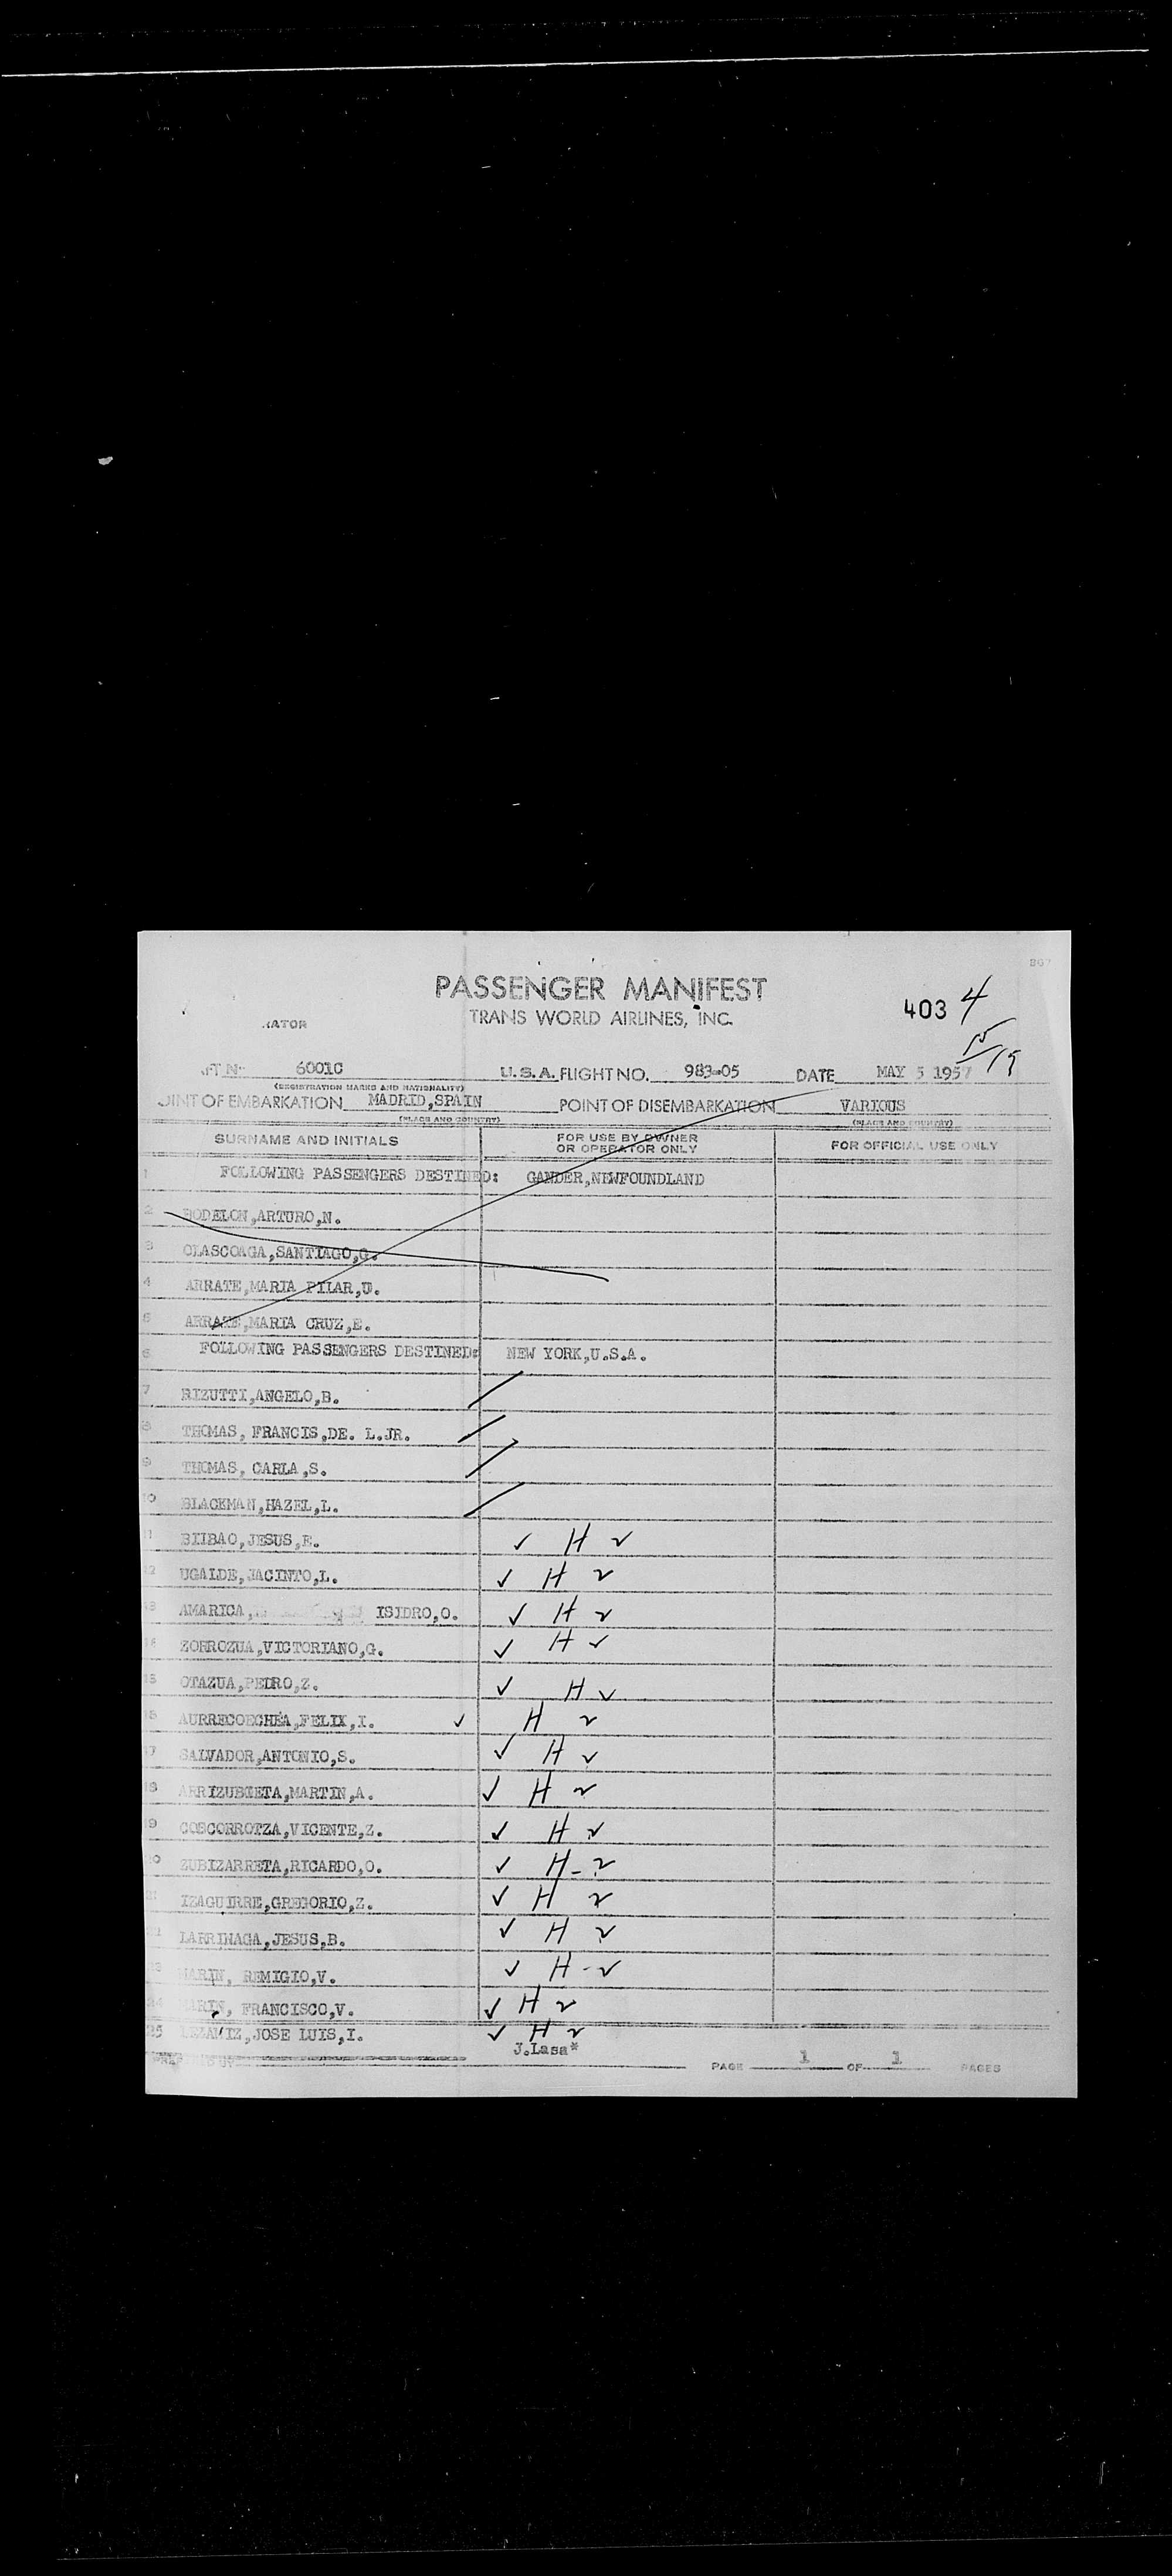 PASSENGER MANIFEST
TRANS WORLD AIRLINES, INC.
403 4
15/19
6001C U.S.A. FLIGHT NO. 983-05 DATE MAY 5 1957
(REGISTRATION MARKS AND NATIONALITY)
OINT OF EMBARKATION MADRID,SPAIN POINT OF DISEMBARKATION VARIOUS
(PLACE AND COUNTRY) (PLACE AND COUNTRY)
SURNAME AND INITIALS FOR USE BY OWNER OR OPERATOR ONLY FOR OFFICIAL USE ONLY
1 FOLLOWING PASSENGERS DESTINED: GANDER,NEWFOUNDLAND
2 BODELON,ARTURO,N.
3 OLASCOAGA,SANTIAGO,G.
4 ARRATE,MARIA PILAR,U.
5 ARRATE,MARIA CRUZ,E.
6 FOLLOWING PASSENGERS DESTINED: NEW YORK,U.S.A.
7 RIZUTTI,ANGELO,B.
8 THOMAS, FRANCIS,DE. L.JR.
9 THOMAS, CARLA,S.
10 BLACKMAN,HAZEL,L.
11 BIIBAO,JESUS,E. ✓ H ✓
12 UGALDE,JACINTO,L. ✓ H ✓
13 AMARICA, ISIDRO,O. ✓ H ✓
14 ZORROZUA,VICTORIANO,G. ✓ H ✓
15 OTAZUA,PEDRO,Z. ✓ H ✓
16 AURRECOECHEA,FELIX,I. ✓ H ✓
17 SALVADOR,ANTONIO,S. ✓ H ✓
18 ARRIZUBIETA,MARTIN,A. ✓ H ✓
19 COSCORROTZA,VICENTE,Z. ✓ H ✓
20 ZUBIZARRETA,RICARDO,O. ✓ H - ✓
21 IZAGUIRRE,GREGORIO,Z. ✓ H ✓
22 LARRINAGA,JESUS,B. ✓ H ✓
23 MARIN, REMIGIO,V. ✓ H - ✓
24 MARIN, FRANCISCO,V. ✓ H ✓
25 JOSE LUIS,I. ✓ H ✓
J.Lasa*
PAGE 1 OF 1 PAGES